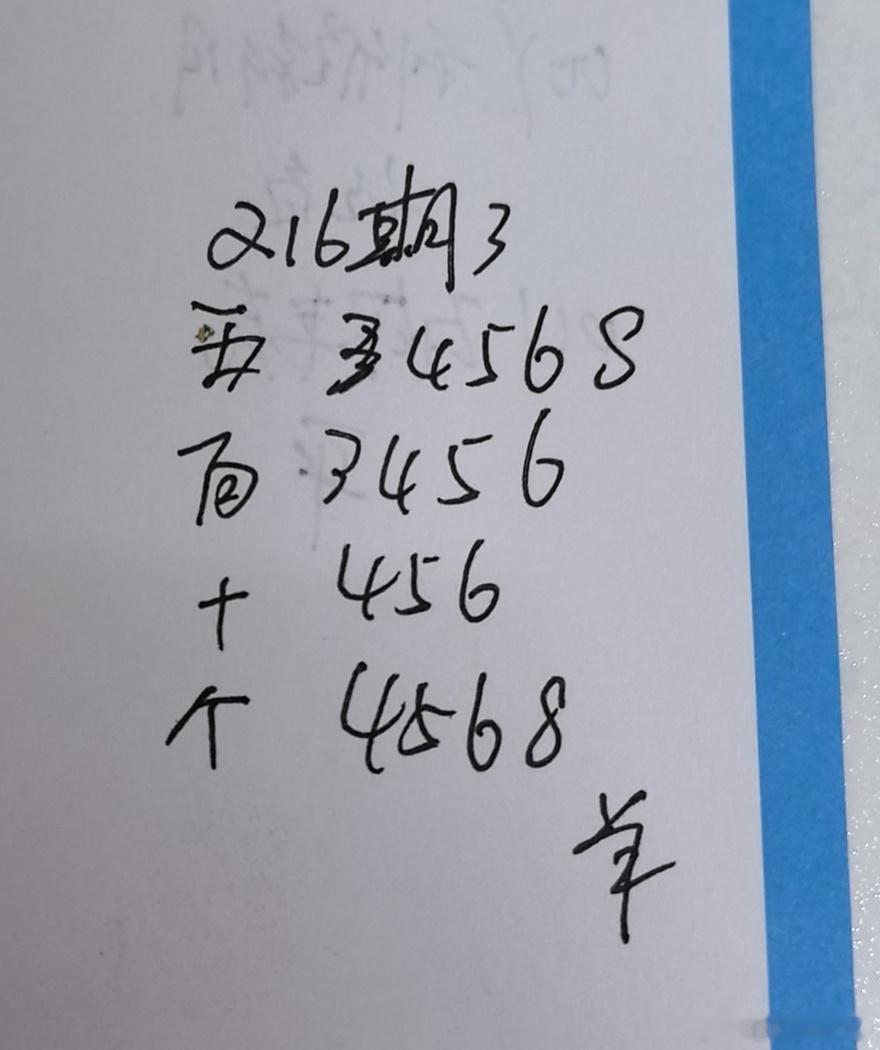 216期3
4568
百 3456
十 456
个 4568
羊